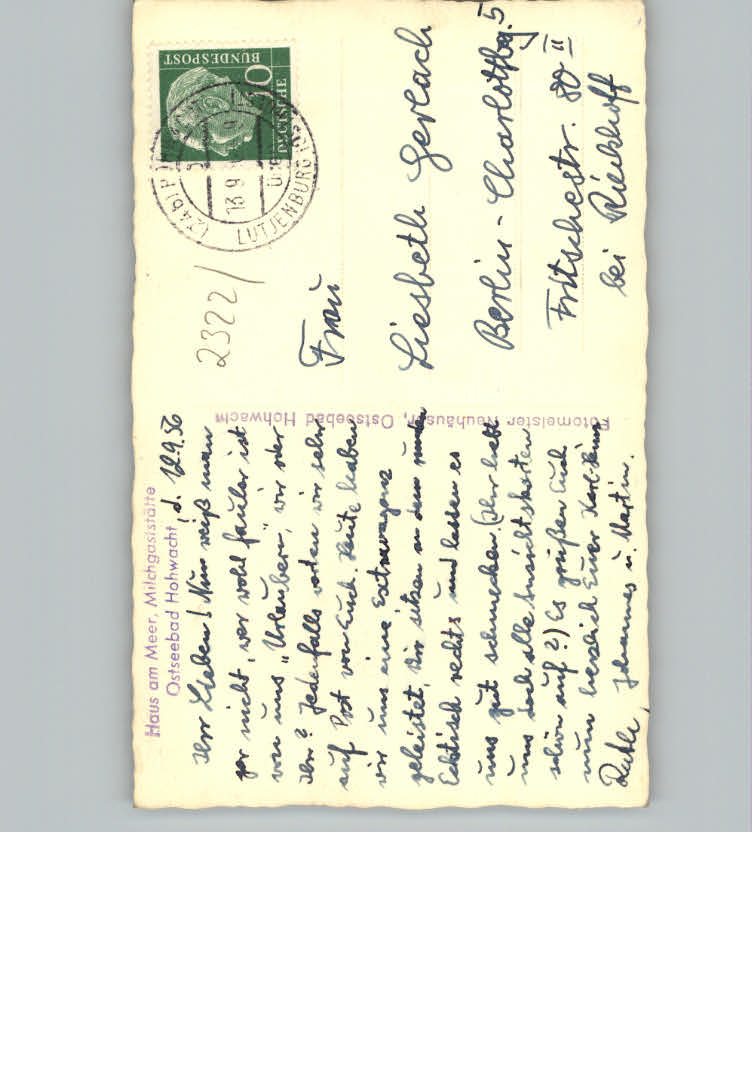 Haus am Meer, Milchgaststätte
Ostseebad Hohwacht
d. 12.9.56
Ihr Lieben! Nun weiß man
gar nicht, wer wohl fauler ist
von uns „Urlaubern", wir oder
Ihr? Jedenfalls warten wir sehr
auf Post von Euch. Heute haben
wir uns eine Extravaganz
geleistet, wir sitzen an dem runden
Ecktisch rechts und lassen es
uns gut schmecken. (Ihr hebt
uns doch alle Ansichtskarten
schön auf?) Es grüßen Euch
nun herzlich Euer Karl-Heinz
Johannes u. Martin.
Fotomeister Neuhäuser, Ostseebad Hohwacht
2322/
DEUTSCHE
BUNDESPOST
10
(24b)
LÜTJENBURG
13.9
Frau
Liesbeth Gerlach
Berlin-Charlottbg. 5
Fritschestr. 80 II
bei